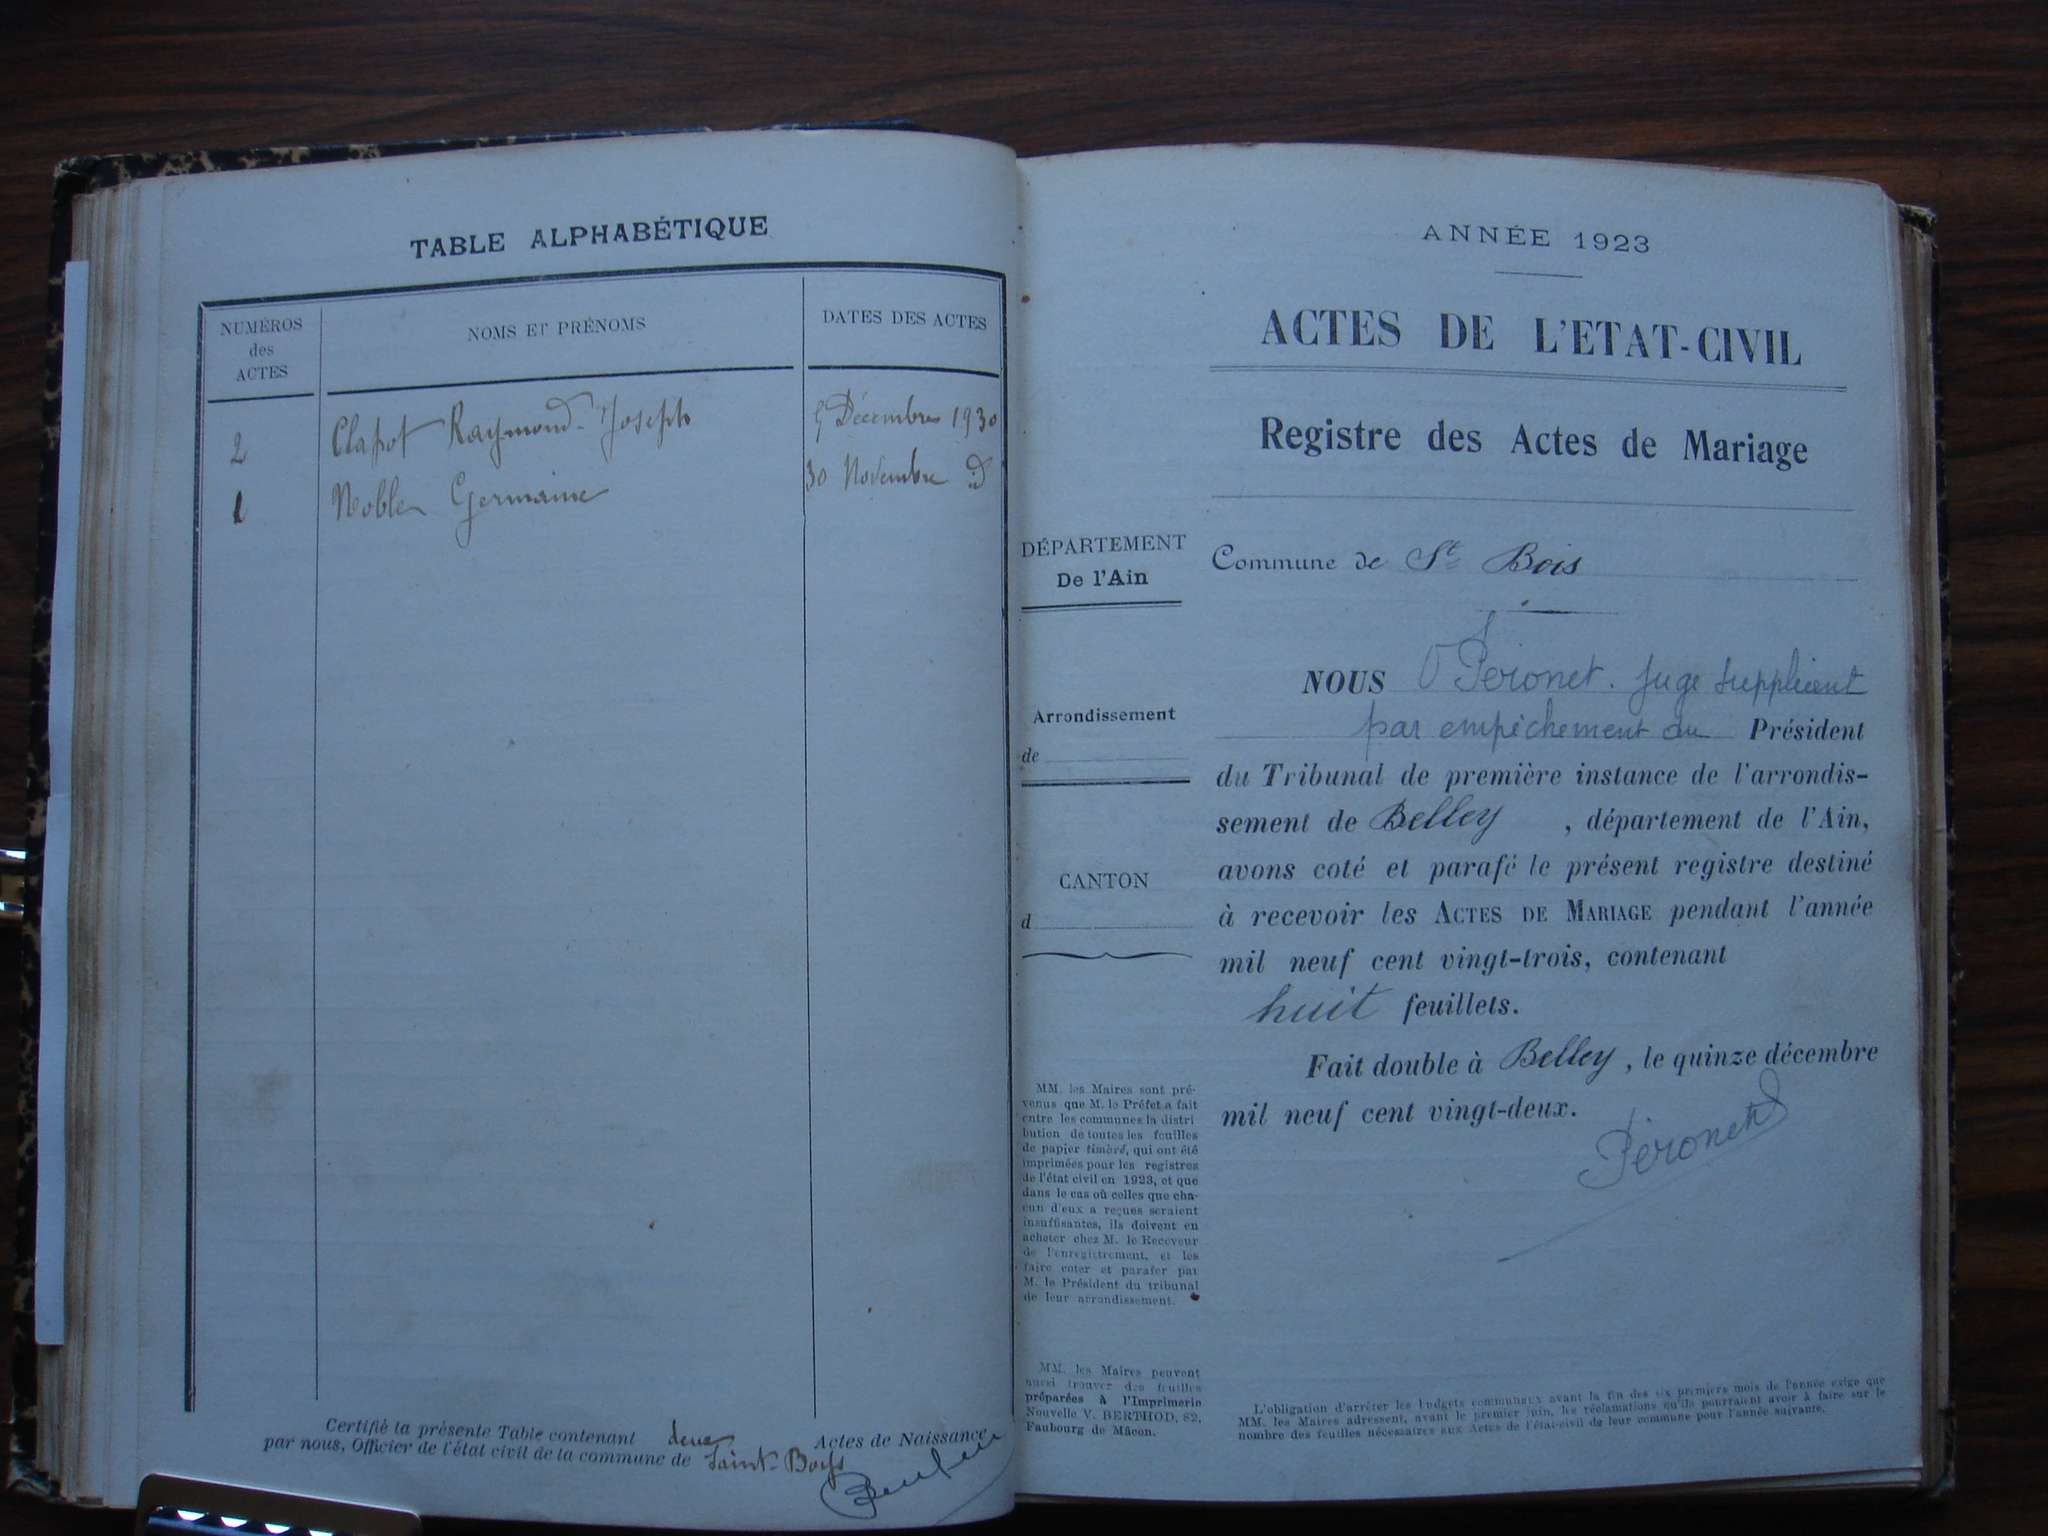 TABLE ALPHABÉTIQUE
NUMÉROS
des
ACTES
NOMS ET PRÉNOMS
DATES DES ACTES
2 Clapot Raymond-Joseph Décembre 1930
1 Noble Germaine 30 Novembre d
Certifié la présente Table contenant deux Actes de Naissance
par nous, Officier de l'état civil de la commune de Saint-Bois
ANNÉE 1923
ACTES DE L'ETAT-CIVIL
Registre des Actes de Mariage
DÉPARTEMENT
De l'Ain
Commune de St Bois
Arrondissement
de
CANTON
d
NOUS Péronet. Juge suppléant
par empêchement du Président
du Tribunal de première instance de l'arrondis-
sement de Belley, département de l'Ain,
avons coté et parafé le présent registre destiné
à recevoir les ACTES DE MARIAGE pendant l'année
mil neuf cent vingt-trois, contenant
huit feuillets.
Fait double à Belley, le quinze décembre
mil neuf cent vingt-deux.
Péronet
MM. les Maires sont pré-
venus que M. le Préfet a fait
entre les communes la distri
bution de toutes les feuilles
de papier timbré, qui ont été
imprimées pour les registres
de l'état civil en 1923, et que
dans le cas où celles que cha-
cun d'eux a reçues seraient
insuffisantes, ils doivent en
acheter chez M. le Receveur
de l'enregistrement, et les
faire coter et parafer par
M. le Président du tribunal
de leur arrondissement.
MM. les Maires peuvent
aussi trouver des feuilles
préparées à l'Imprimerie
Nouvelle V. BERTHOD, 82,
Faubourg de Mâcon.
L'obligation d'arrêter les budgets communaux avant la fin des six premiers mois de l'année exige que
MM. les Maires adressent, avant le premier juin, les réclamations qu'ils pourraient avoir à faire sur le
nombre des feuilles nécessaires aux Actes de l'état-civil de leur commune pour l'année suivante.